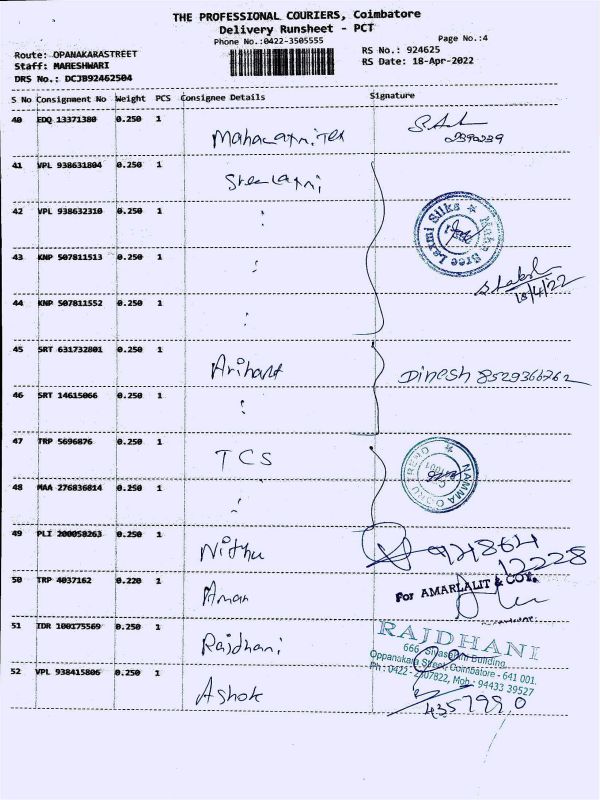 THE PROFESSIONAL COURIERS, Coimbatore
Delivery Runsheet - PCT
Phone No.:0422-3505555
Page No.:4
Route: OPANAKARASTREET
Staff: MARESHWARI
DRS No.: DCJB92462504
RS No.: 924625
RS Date: 18-Apr-2022
S No Consignment No Weight PCS Consignee Details Signature
40 EDQ 13371380 0.250 1
41 VPL 938631804 0.250 1 SreeLaxmi
42 VPL 938632310 0.250 1 :
43 KNP 507811513 0.250 1 :
44 KNP 507811552 0.250 1 :
45 SRT 631732801 0.250 1 Arihant Dinesh
46 SRT 14615066 0.250 1 :
47 TRP 5696876 0.250 1 TCS
48 MAA 276836814 0.250 1 :
49 PLI 200058263 0.250 1 Nithu
50 TRP 4037162 0.220 1 Aman
51 IDR 100175569 0.250 1 Rajdhani
52 VPL 938415806 0.250 1 Ashok
Maha Sree Laxmi Silks
18/4/22
NAMMA OORU TREND
For AMARLALIT & COY.
RAJDHANI
666, Building,
Oppanakara Street, Coimbatore - 641 001.
Ph : 0422 - 2307822, Mob : 94433 39527